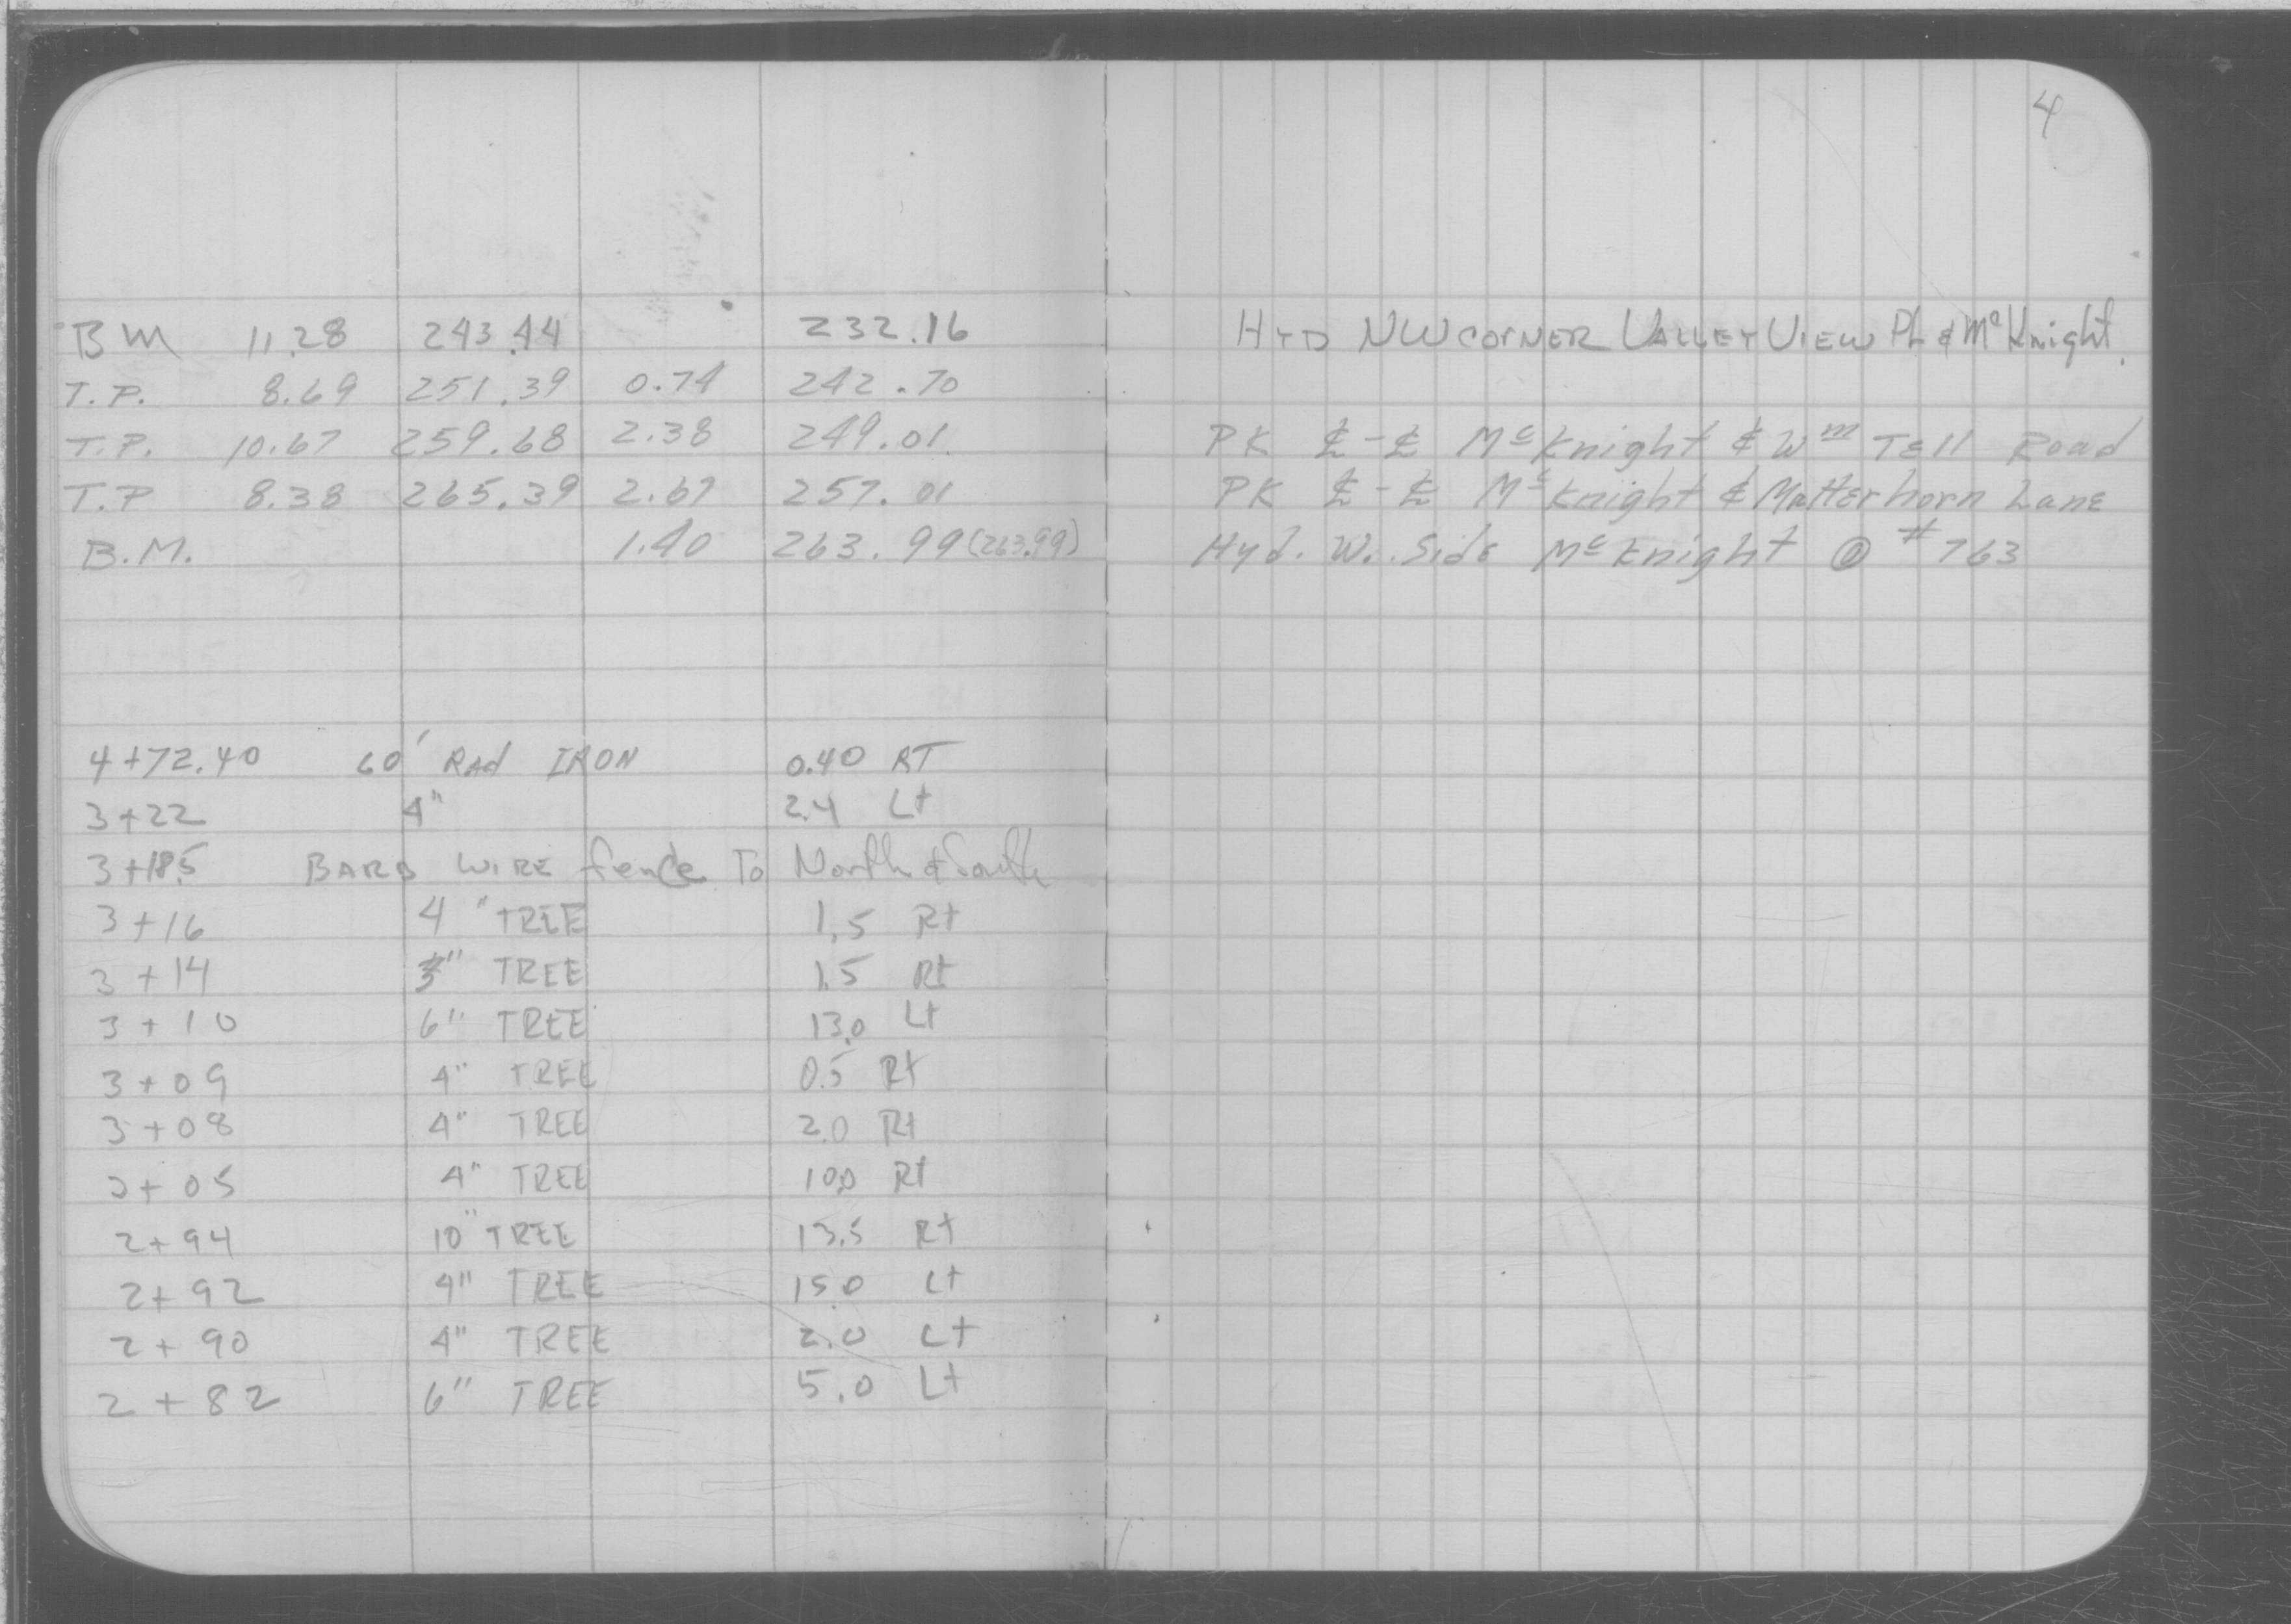 4
BM 11.28 243.44 232.16 HYD NW CORNER VALLEY VIEW PL & McKnight.
T.P. 8.69 251.39 0.74 242.70
T.P. 10.67 259.68 2.38 249.01 PK ℄-℄ McKnight & Wm TEll Road
T.P 8.38 265.39 2.67 257.01 PK ℄-℄ McKnight & MattErhorn LanE
B.M. 1.40 263.99 (263.99) Hyd. W. SidE McKnight @ #763
4+72.40 60' RAd IRON 0.40 RT
3+22 4" 2.4 Lt
3+18.5 BARB WIRE fence To North & South
3+16 4" TREE 1.5 Rt
3+14 3" TREE 1.5 Rt
3+10 6" TREE 13.0 Lt
3+09 4" TREE 0.5 Rt
3+08 4" TREE 2.0 Rt
3+05 4" TREE 10.0 Rt
2+94 10" TREE 13.5 Rt
2+92 4" TREE 15.0 Lt
2+90 4" TREE 2.0 Lt
2+82 6" TREE 5.0 Lt